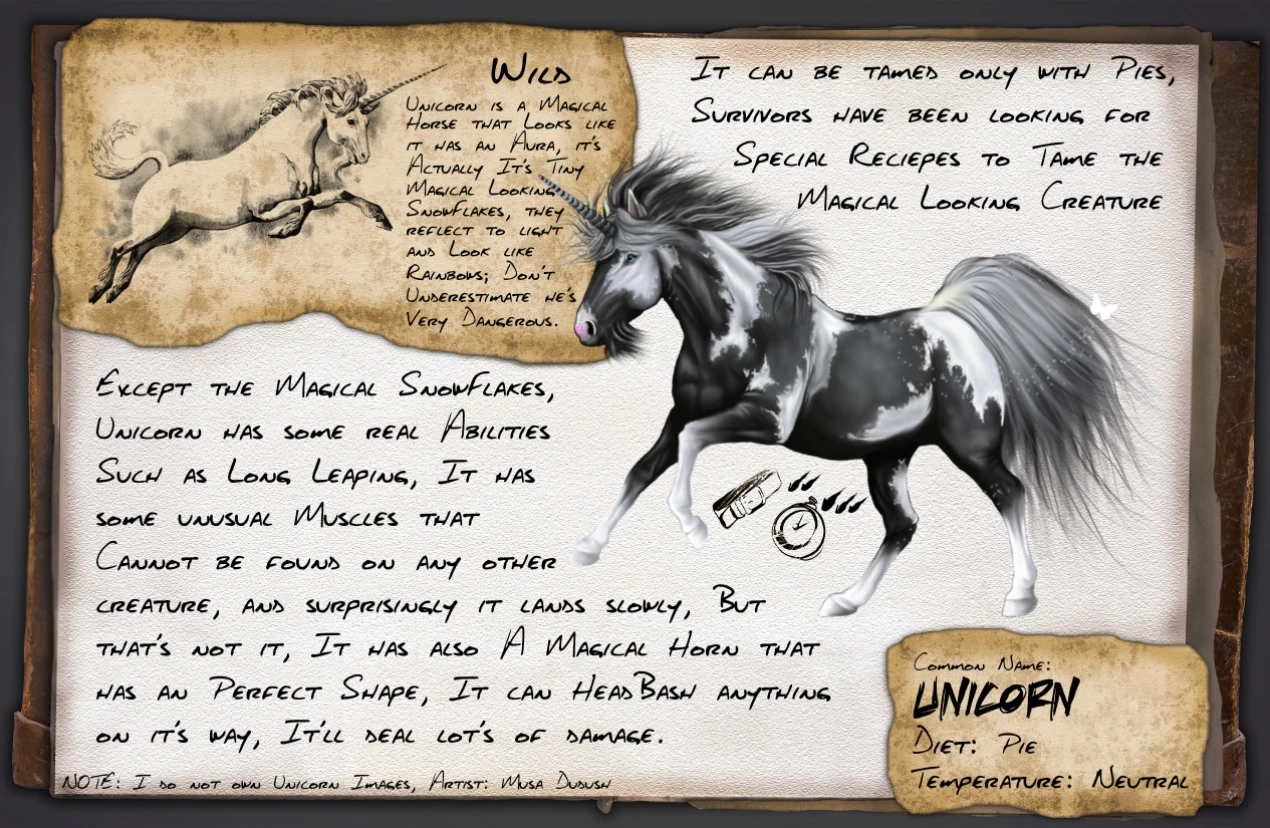 Wild
Unicorn is a Magical
Horse that Looks like
it has an Aura, it's
Actually It's Tiny
Magical Looking
SnowFlakes, they
reflect to light
and Look like
Rainbows; Don't
Underestimate he's
Very Dangerous.
It can be tamed only with Pies,
Survivors have been looking for
Special Reciepes to Tame the
Magical Looking Creature
Except the Magical SnowFlakes,
Unicorn has some real Abilities
Such as Long Leaping, It has
some unusual Muscles that
Cannot be found on any other
creature, and surprisingly it lands slowly, But
that's not it, It has also A Magical Horn that
has an Perfect Shape, It can HeadBash anything
on it's way, It'll deal lot's of damage.
Common Name:
UNICORN
Diet: Pie
Temperature: Neutral
NOTE: I do not own Unicorn Images, Artist: Musa Dudush